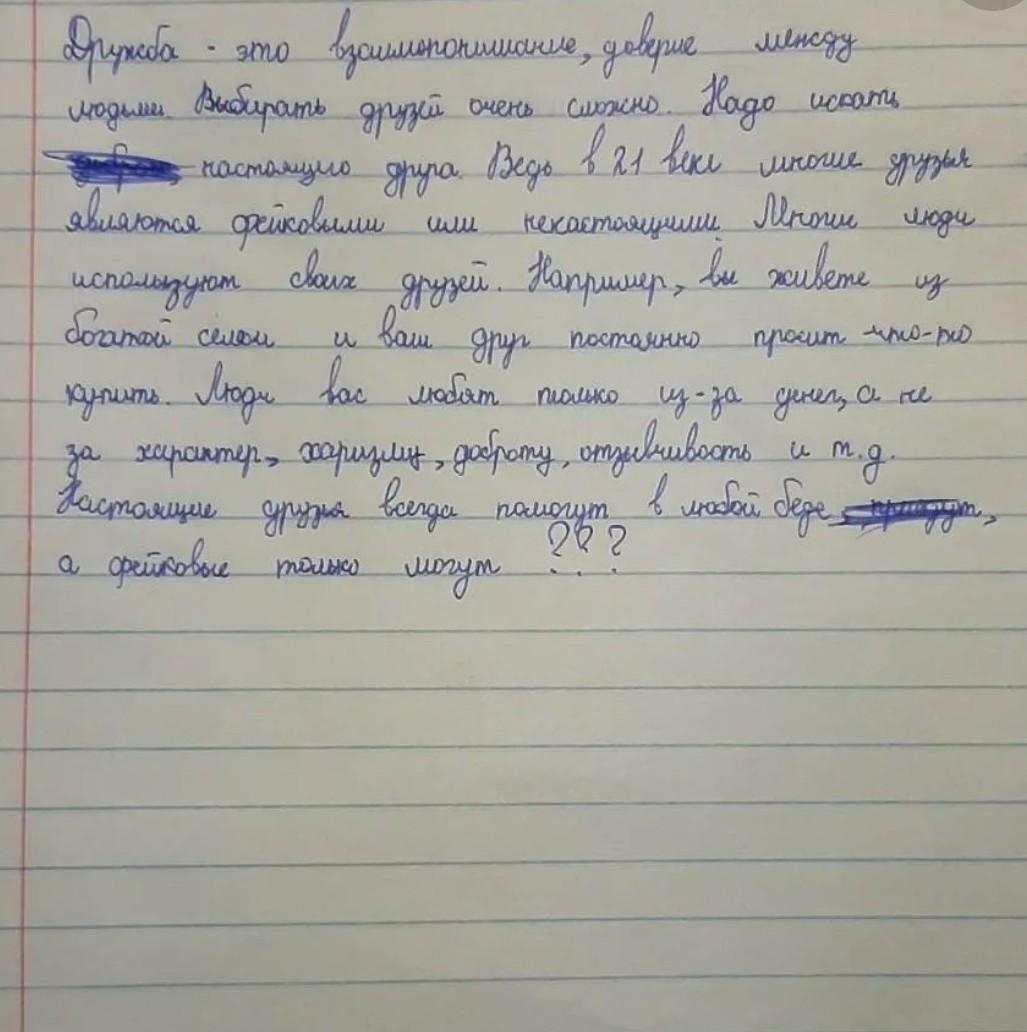 Дружба - это взаимопонимание, доверие между
людьми. Выбирать друзей очень сложно. Надо искать
настоящего друга. Ведь в 21 веке многие друзья
являются фейковыми или ненастоящими. Многие люди
используют своих друзей. Например, вы живете из
богатой семьи и ваш друг постоянно просит что-то
купить. Люди вас любят только из-за денег, а не
за характер, харизму, доброту, отзывчивость и т.д.
Настоящие друзья всегда помогут в любой беде,
а фейковые только могут ???